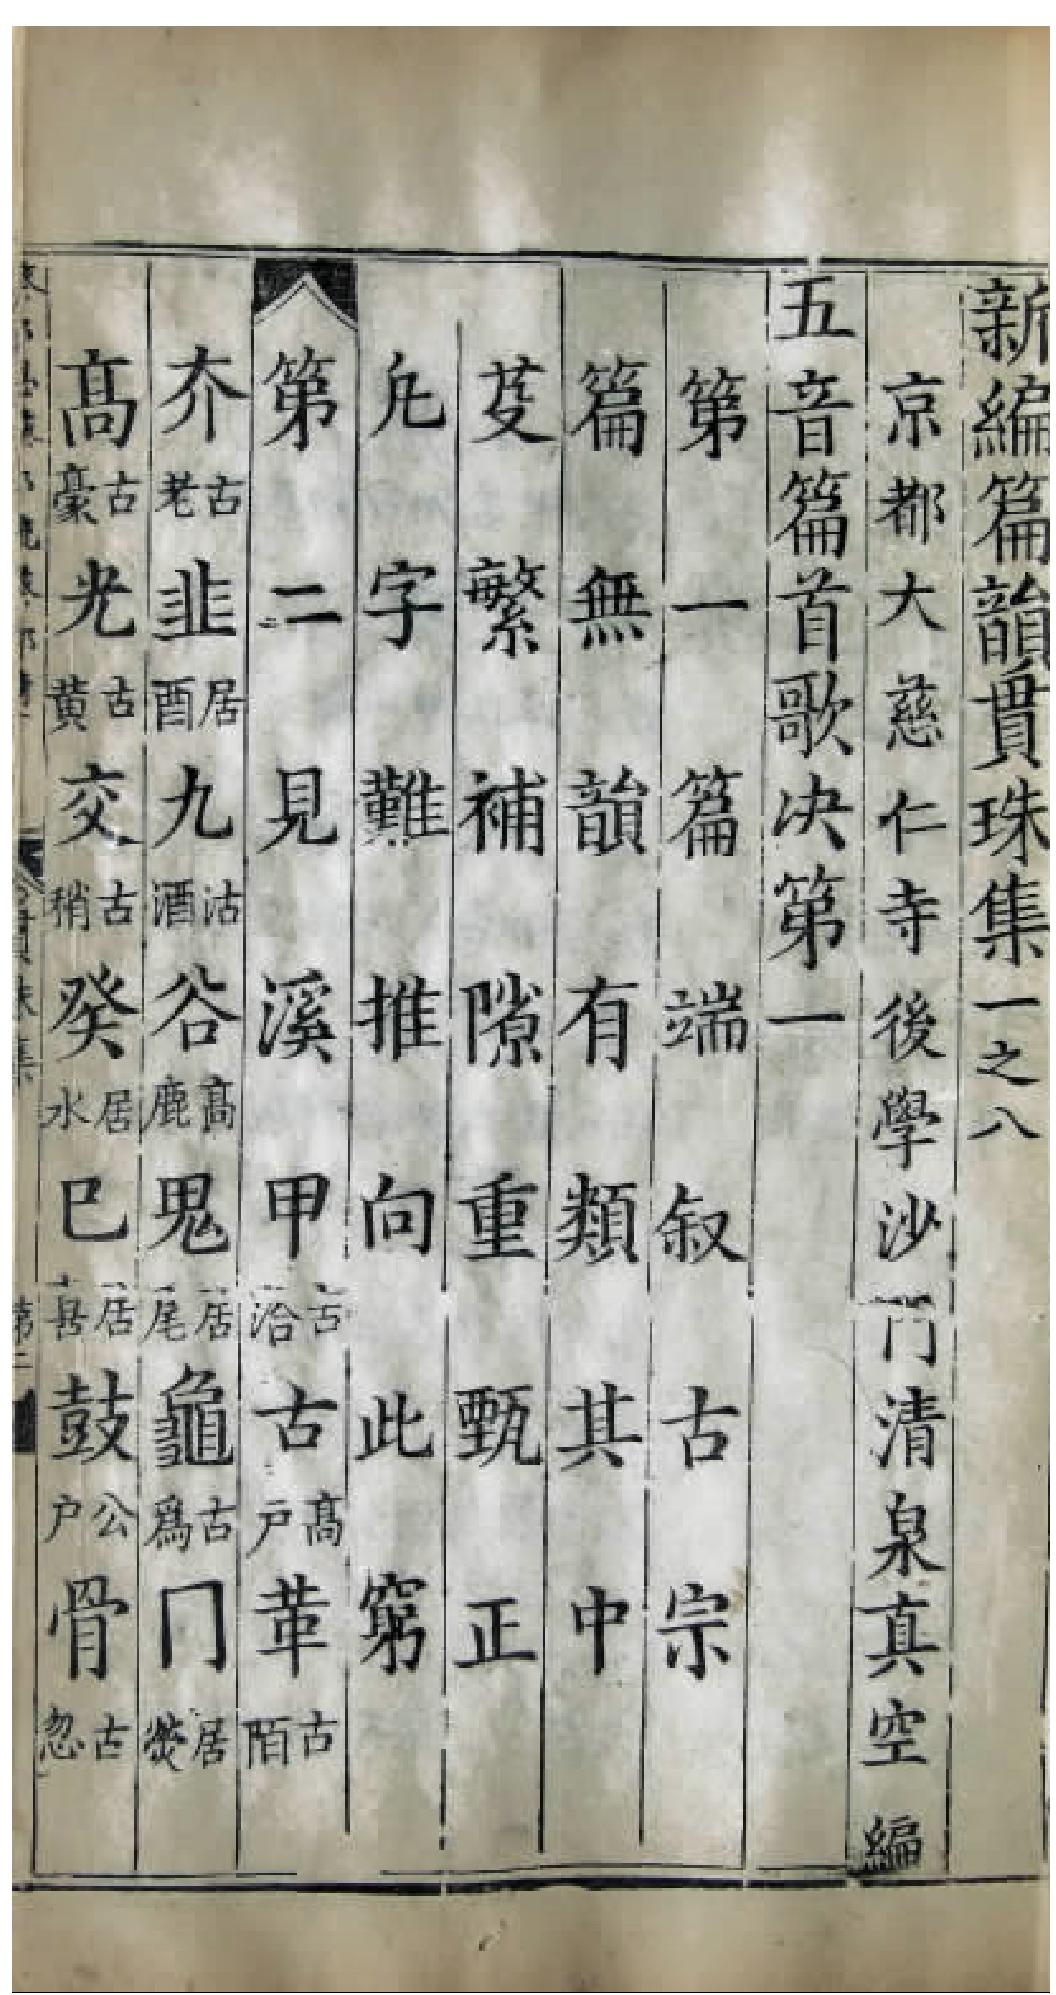 新編篇韻貫珠集一之八
京都大慈仁寺後學沙門清泉真空 編
五音篇首歌决第一
第一篇端叙古宗
篇無韻有類其中
芟繁補隙重甄正
凢字難推向此窮
第二見溪甲古洽古高戸革古陌
夰古老韭居酉九沽酒谷高鹿鬼居尾龜古爲冂居熒
髙古豪光古黄交古稍癸居水巳居鼓公户骨古忽